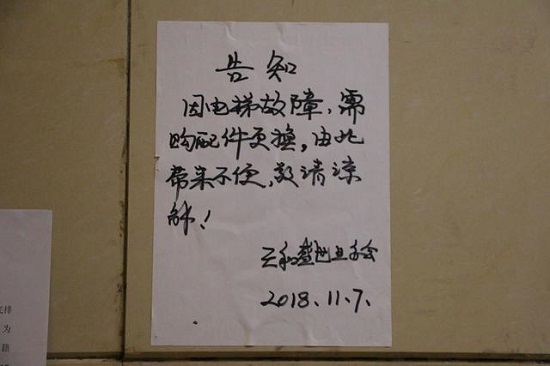 告知
因电梯故障，需
购配件更换，由此
带来不便，敬请谅
解！
三和盛世业委会
2018.11.7.
为